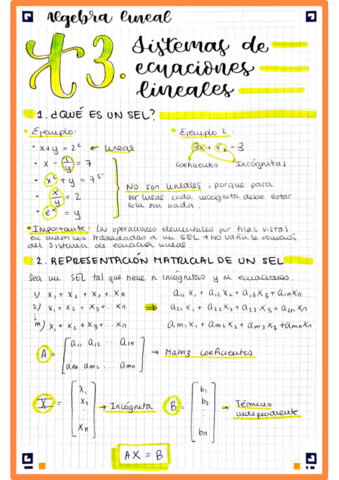 Algebra lineal
t3. Sistemas de
ecuaciones
lineales
1. ¿QUÉ ES UN SEL?
• Ejemplo:
• x+y = 2² ← lineal
• x - 1/y = 7
• x² + y = 7⁵
• x/y = 2
• eˣ = y
No son lineales, porque para
ser lineal cada incógnita debe estar
sola sin nada.
• Ejemplo 2
3x + x₂ = 3
Coeficientes
Incógnitas
• Importante: las operaciones elementales por filas vistas
en matrices trasladadas a un SEL → No varía la solución
del sistema de ecuación lineal
2. REPRESENTACIÓN MATRICIAL DE UN SEL
Sea un SEL tal que tiene n incógnitas y m ecuaciones.
1) x₁ + x₂ + x₃ + .. xn ⇒ a₁₁x₁ + a₁₂x₂ + a₁₃x₃ + a₁nxn
2) x₁ + x₂ + x₃.. xn a₂₁x₁ + a₂₂x₂ + a₂₃x₃ + a₂nxn
m) x₁ + x₂ + x₃+.. xn am₁x₁ + am₂x₂ + am₃x₃ + amnxn
A = [a₁₁ a₁₂ .. a₁n
am₁ am₂.. amn] → Matriz coeficientes
X = [x₁
x₂
xn] → Incógnita
B = [b₁
b₂
bn] → Término
independiente
AX = B